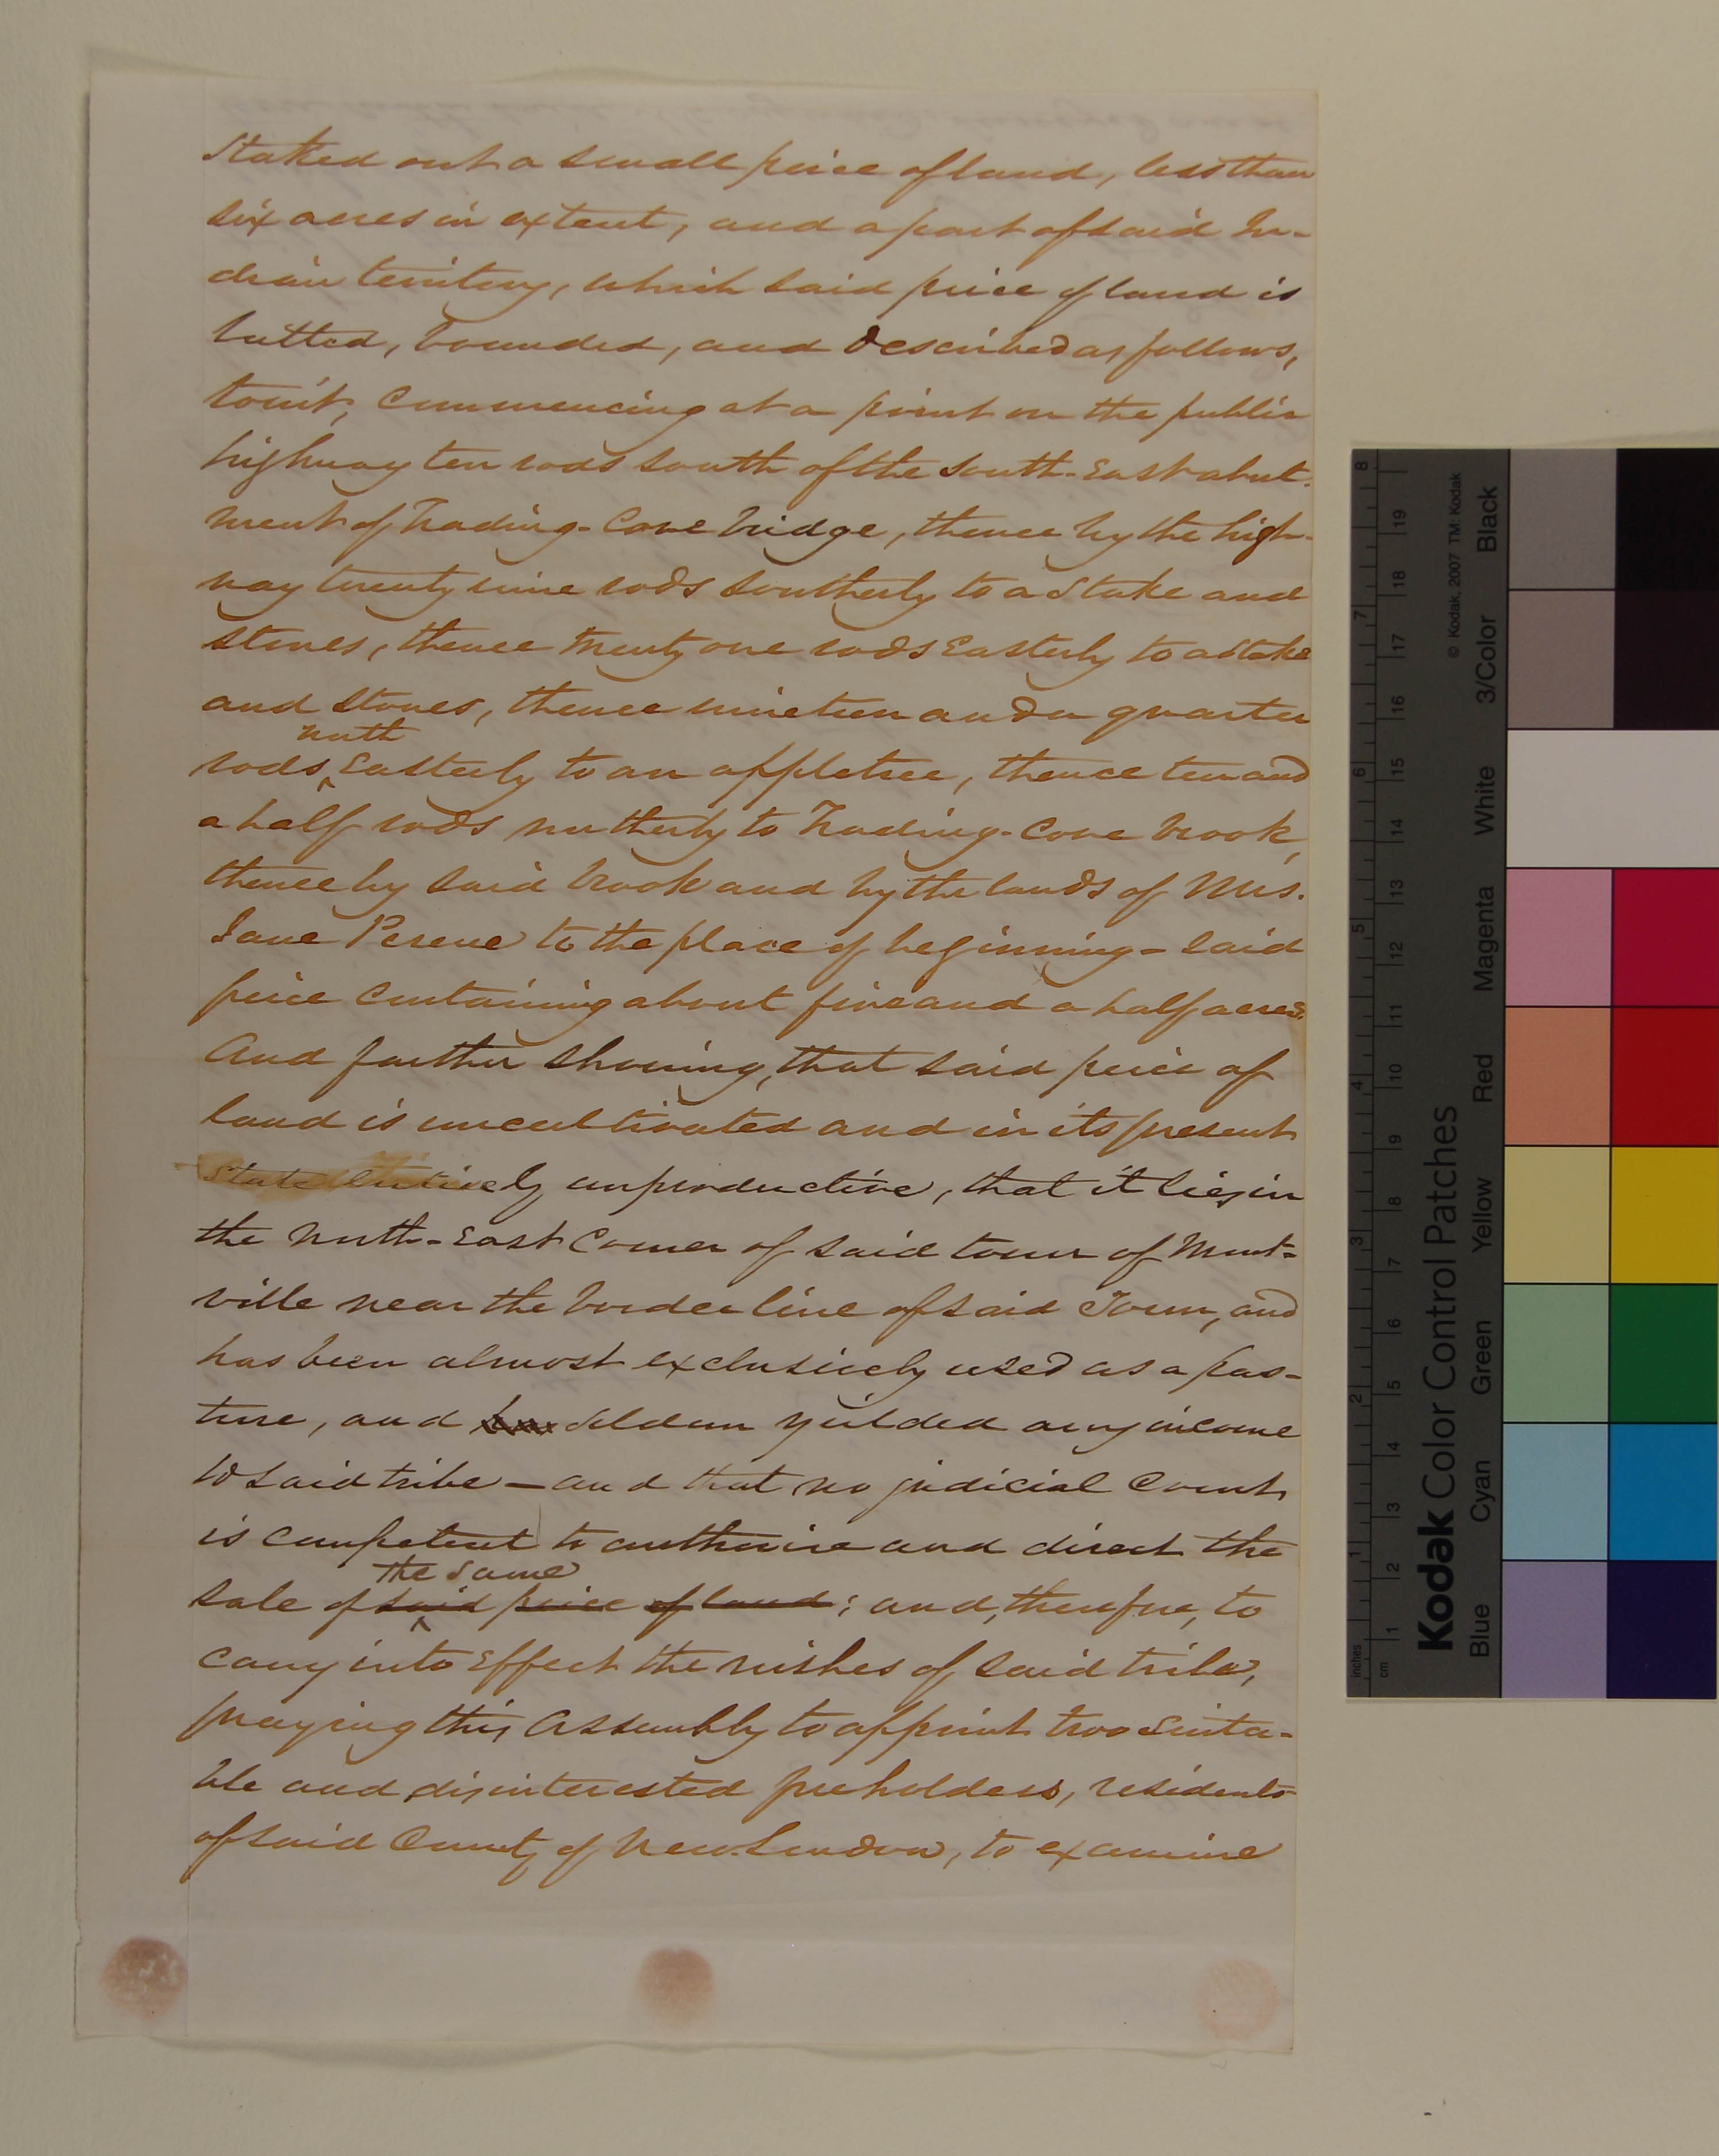 Staked out a small peice of land, less than
six acres in extent, and a part of said In-
dian territory, which said peice of land is
butted, bounded, and described as follows,
towit, Commencing at a point on the public
highway ten rods south of the South-East abut-
ment of Trading-Cove bridge, thence by the high-
way twenty nine rods southerly to a Stake and
stones, thence twenty one rods Easterly to a stake
and stones, thence nineteen and a quarter
north
rods, Easterly to an appletree, thence ten and
a half rods northerly to Trading-Cove brook,
thence by said brook and by the lands of Mrs.
Jane Perene to the place of beginning - said
peice containing about five and a half acres.
And further showing, that said peice of
land is uncultivated and in its present
state entirely unproductive, that it lies in
the North-East Corner of said town of Mont-
ville near the border line of said Town, and
has been almost exclusively used as a pas-
ture, and seldom yeilded any income
to said tribe — and that no judicial Court
is competent to authorise and direct the
the same
sale of said peice of land; and, therefore, to
carry into Effect the wishes of said tribe,
praying this Assembly to appoint two suita-
ble and disinterested freeholders, residents
of said County of New London, to examine
Kodak Color Control Patches
© Kodak, 2007 TM: Kodak
Blue Cyan Green Yellow Red Magenta White 3/Color Black
inches 1 2 3 4 5 6 7 8
cm 1 2 3 4 5 6 7 8 9 10 11 12 13 14 15 16 17 18 19